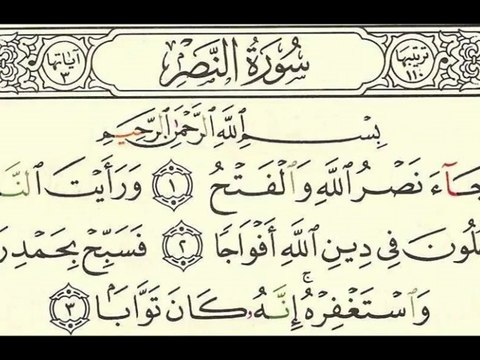 ترتيبها ١١٠ سُورَةُ النَّصْرِ آياتها ٣
بِسْمِ ٱللَّهِ ٱلرَّحْمَٰنِ ٱلرَّحِيمِ
جَآءَ نَصْرُ ٱللَّهِ وَٱلْفَتْحُ ١ وَرَأَيْتَ
فِى دِينِ ٱللَّهِ أَفْوَاجًا ٢ فَسَبِّحْ
وَٱسْتَغْفِرْهُ ۚ إِنَّهُۥ كَانَ تَوَّابًۢا ٣